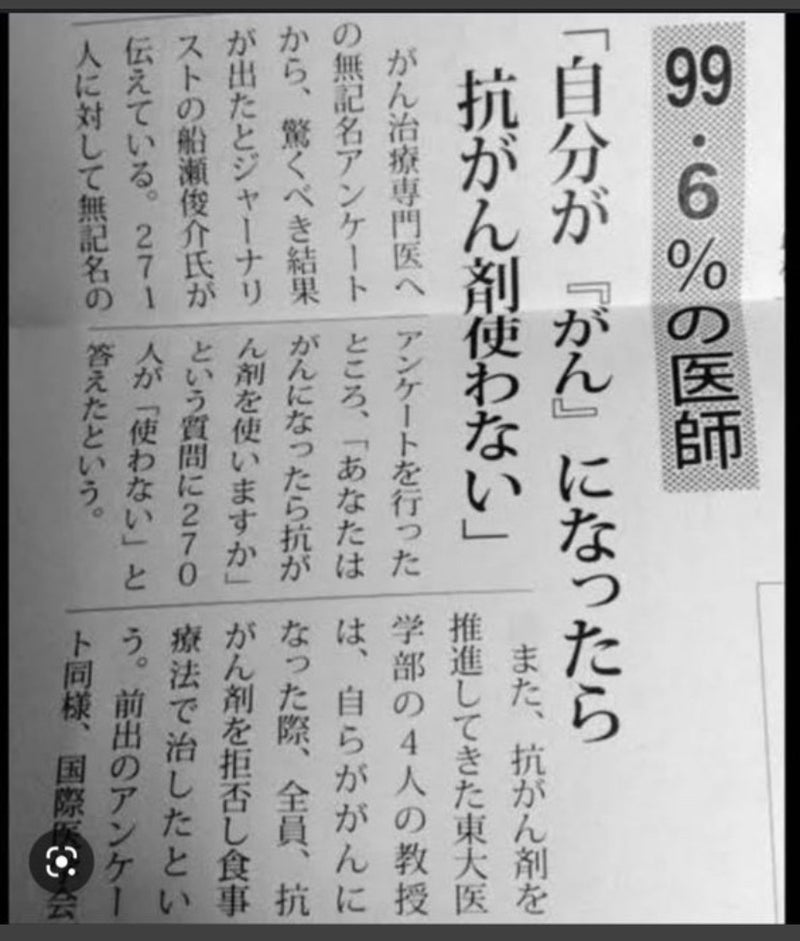 99・6%の医師
「自分が『がん』になったら
抗がん剤使わない」
がん治療専門医へ
の無記名アンケート
から、驚くべき結果
が出たとジャーナリ
ストの船瀬俊介氏が
伝えている。271
人に対して無記名の
アンケートを行った
ところ、「あなたは
がんになったら抗が
ん剤を使いますか」
という質問に270
人が「使わない」と
答えたという。
また、抗がん剤を
推進してきた東大医
学部の4人の教授
は、自らががんに
なった際、全員、抗
がん剤を拒否し食事
療法で治したとい
う。前出のアンケー
ト同様、国際医